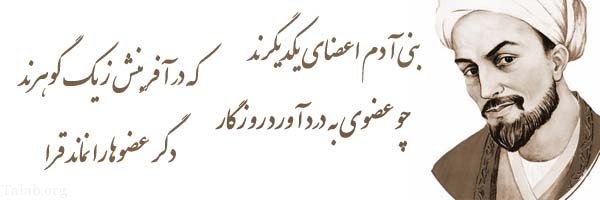 بنی آدم اعضای یکدیگرند
که در آفرینش ز یک گوهرند
چو عضوی به درد آورد روزگار
دگر عضوها را نماند قرا
Talab.org